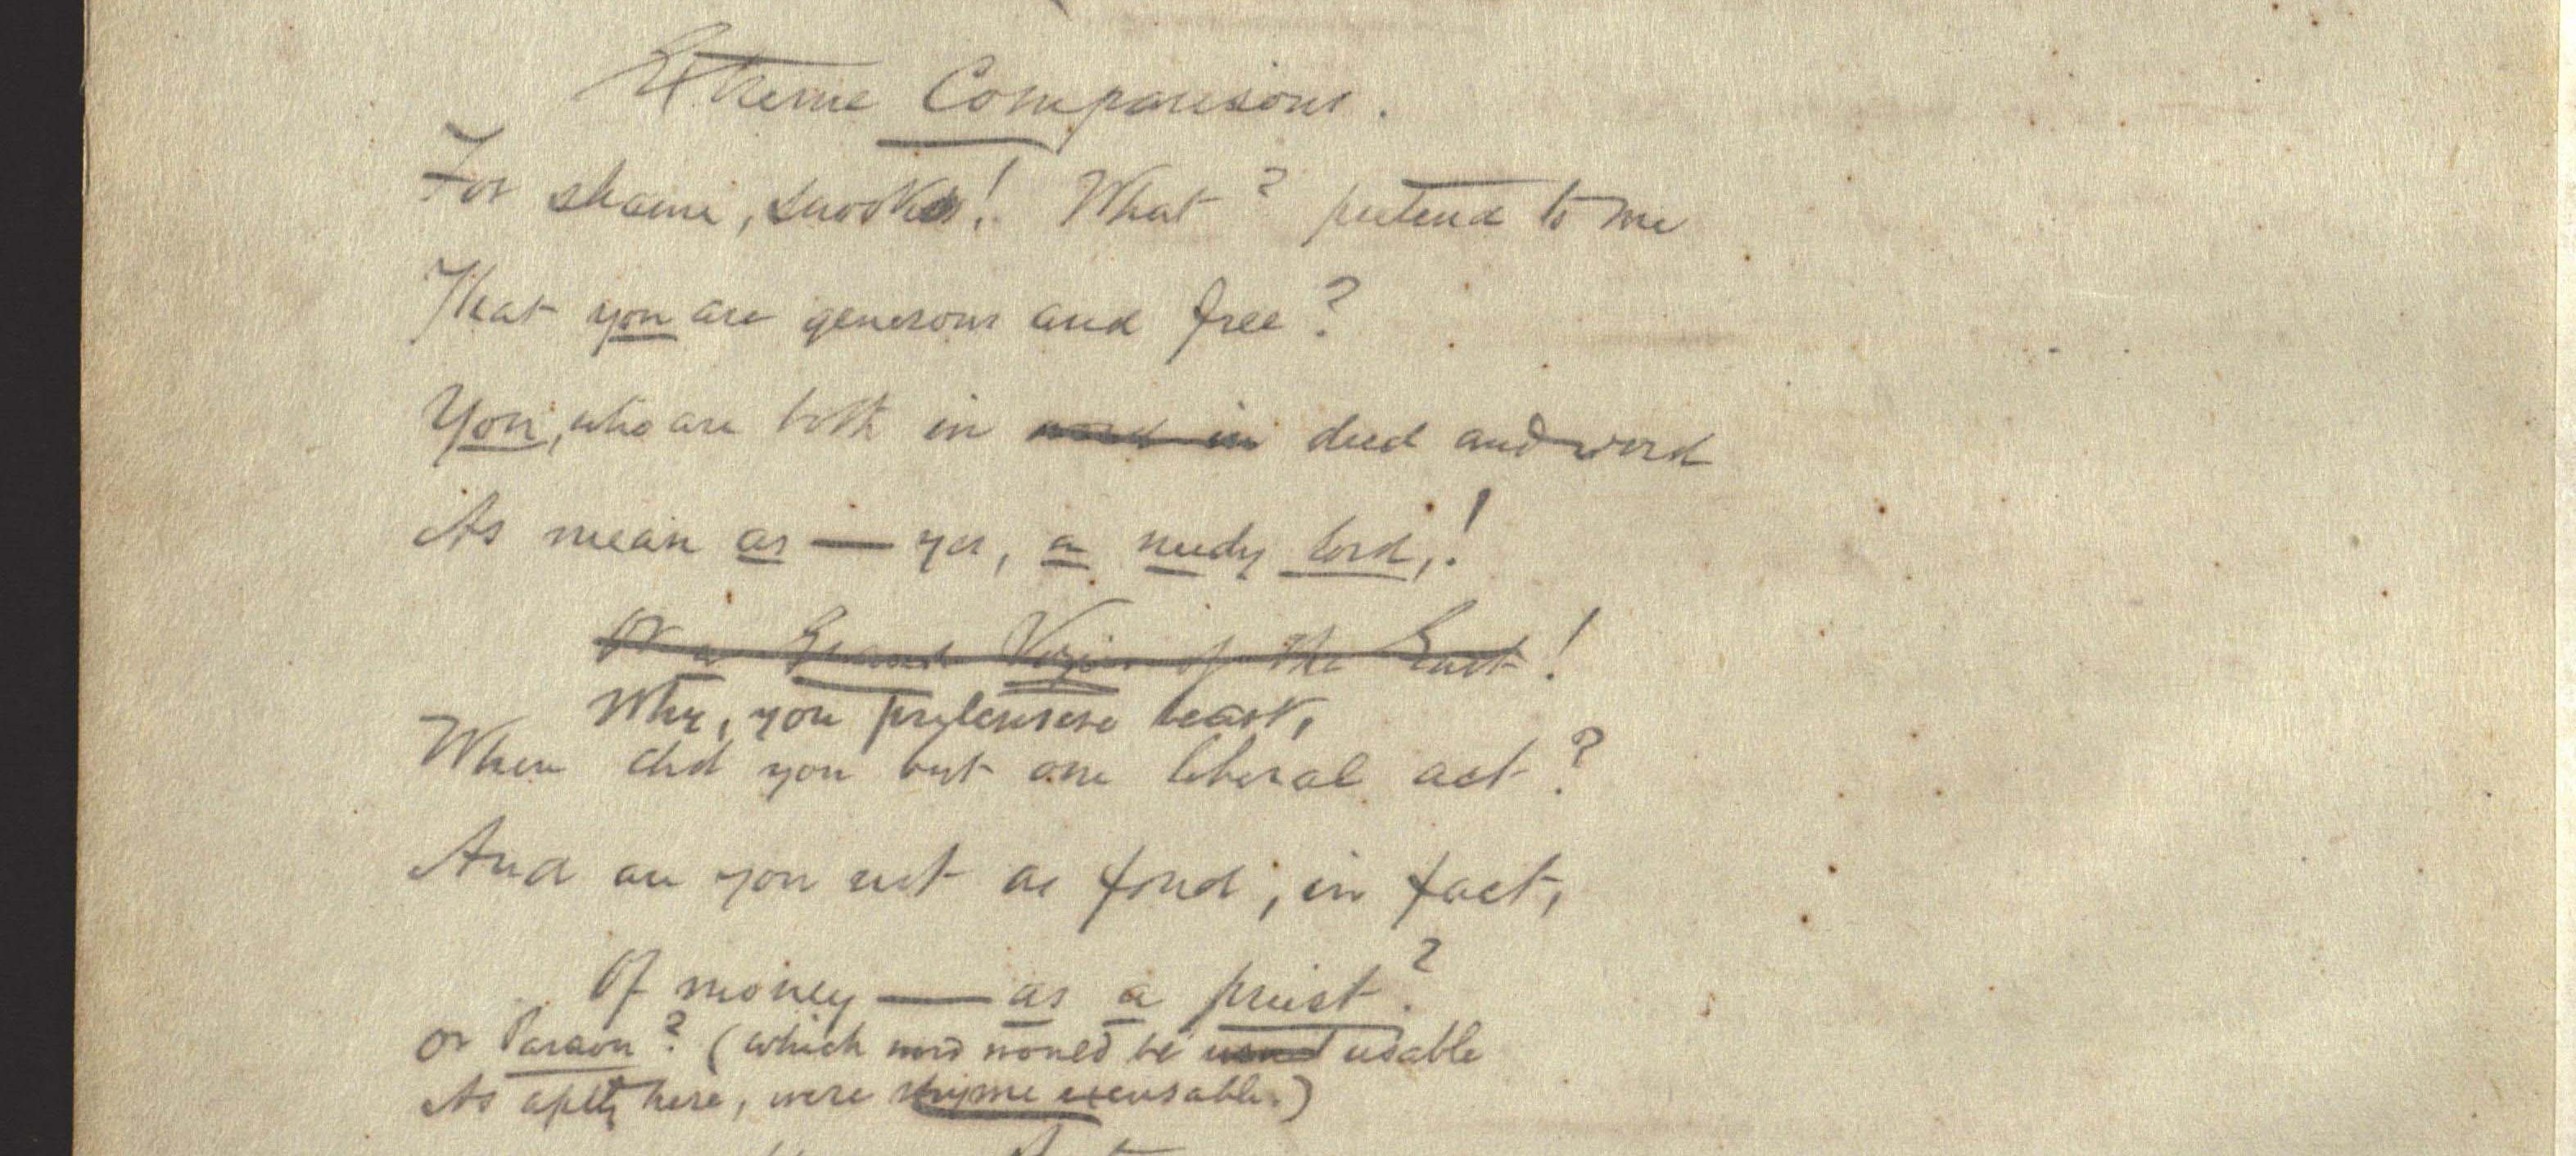 Extreme Comparisons.
For shame, Snooks! What? pretend to me
That you are generous and free?
You, who are both in word in deed and word
As mean as — yes, a needy lord,!
Or a Grand Vizier of the East!
Why, you beast,
When did you but one liberal act?
And are you not as fond, in fact,
Of money — as a priest?
Or Parson? (which word would be usable
As aptly here, were rhyme excusable.)